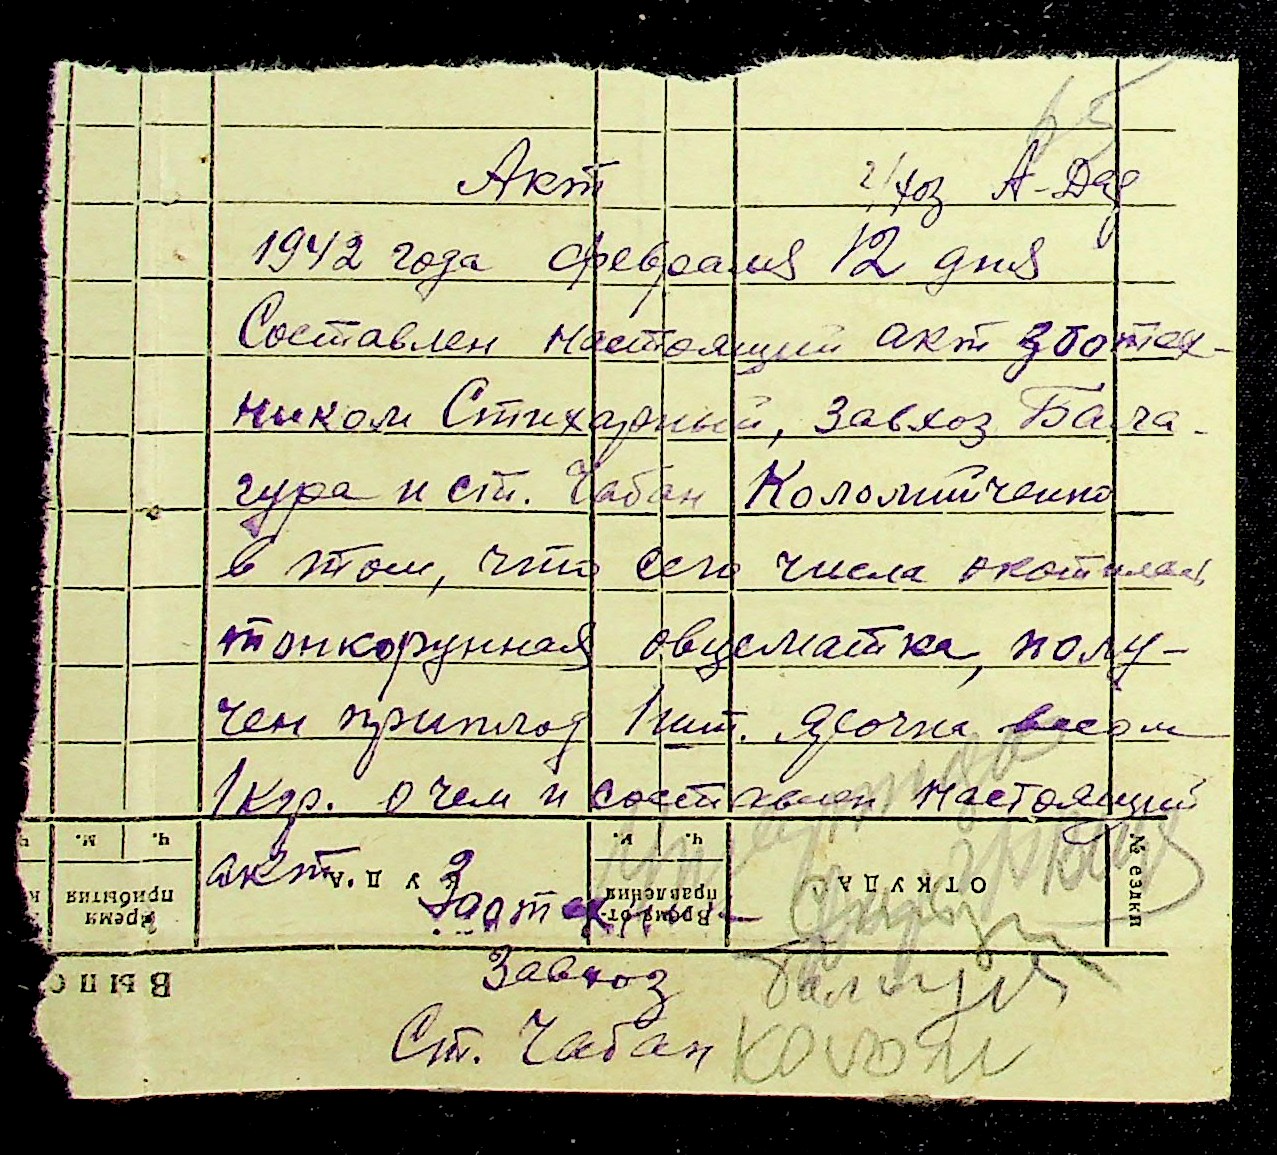 65
Акт г/хоз А-Дад
1942 года февраля 12 дня
Составлен настоящий акт зоотех-
ником Стихарный, завхоз Бала-
гура и ст. Чабан Коломийченко
в том, что сего числа окотилась
тонкорунная овцематка, полу-
чен приплод 1 шт. ярочка весом
1 кгр. о чем и составлен настоящий
акт.
ч. м. ч. м. КУДА ОТКУДА № ездки
Время прибытия Время отправления
Зоотехник
Завхоз Балагура
Выпо
Ст. Чабан Колом